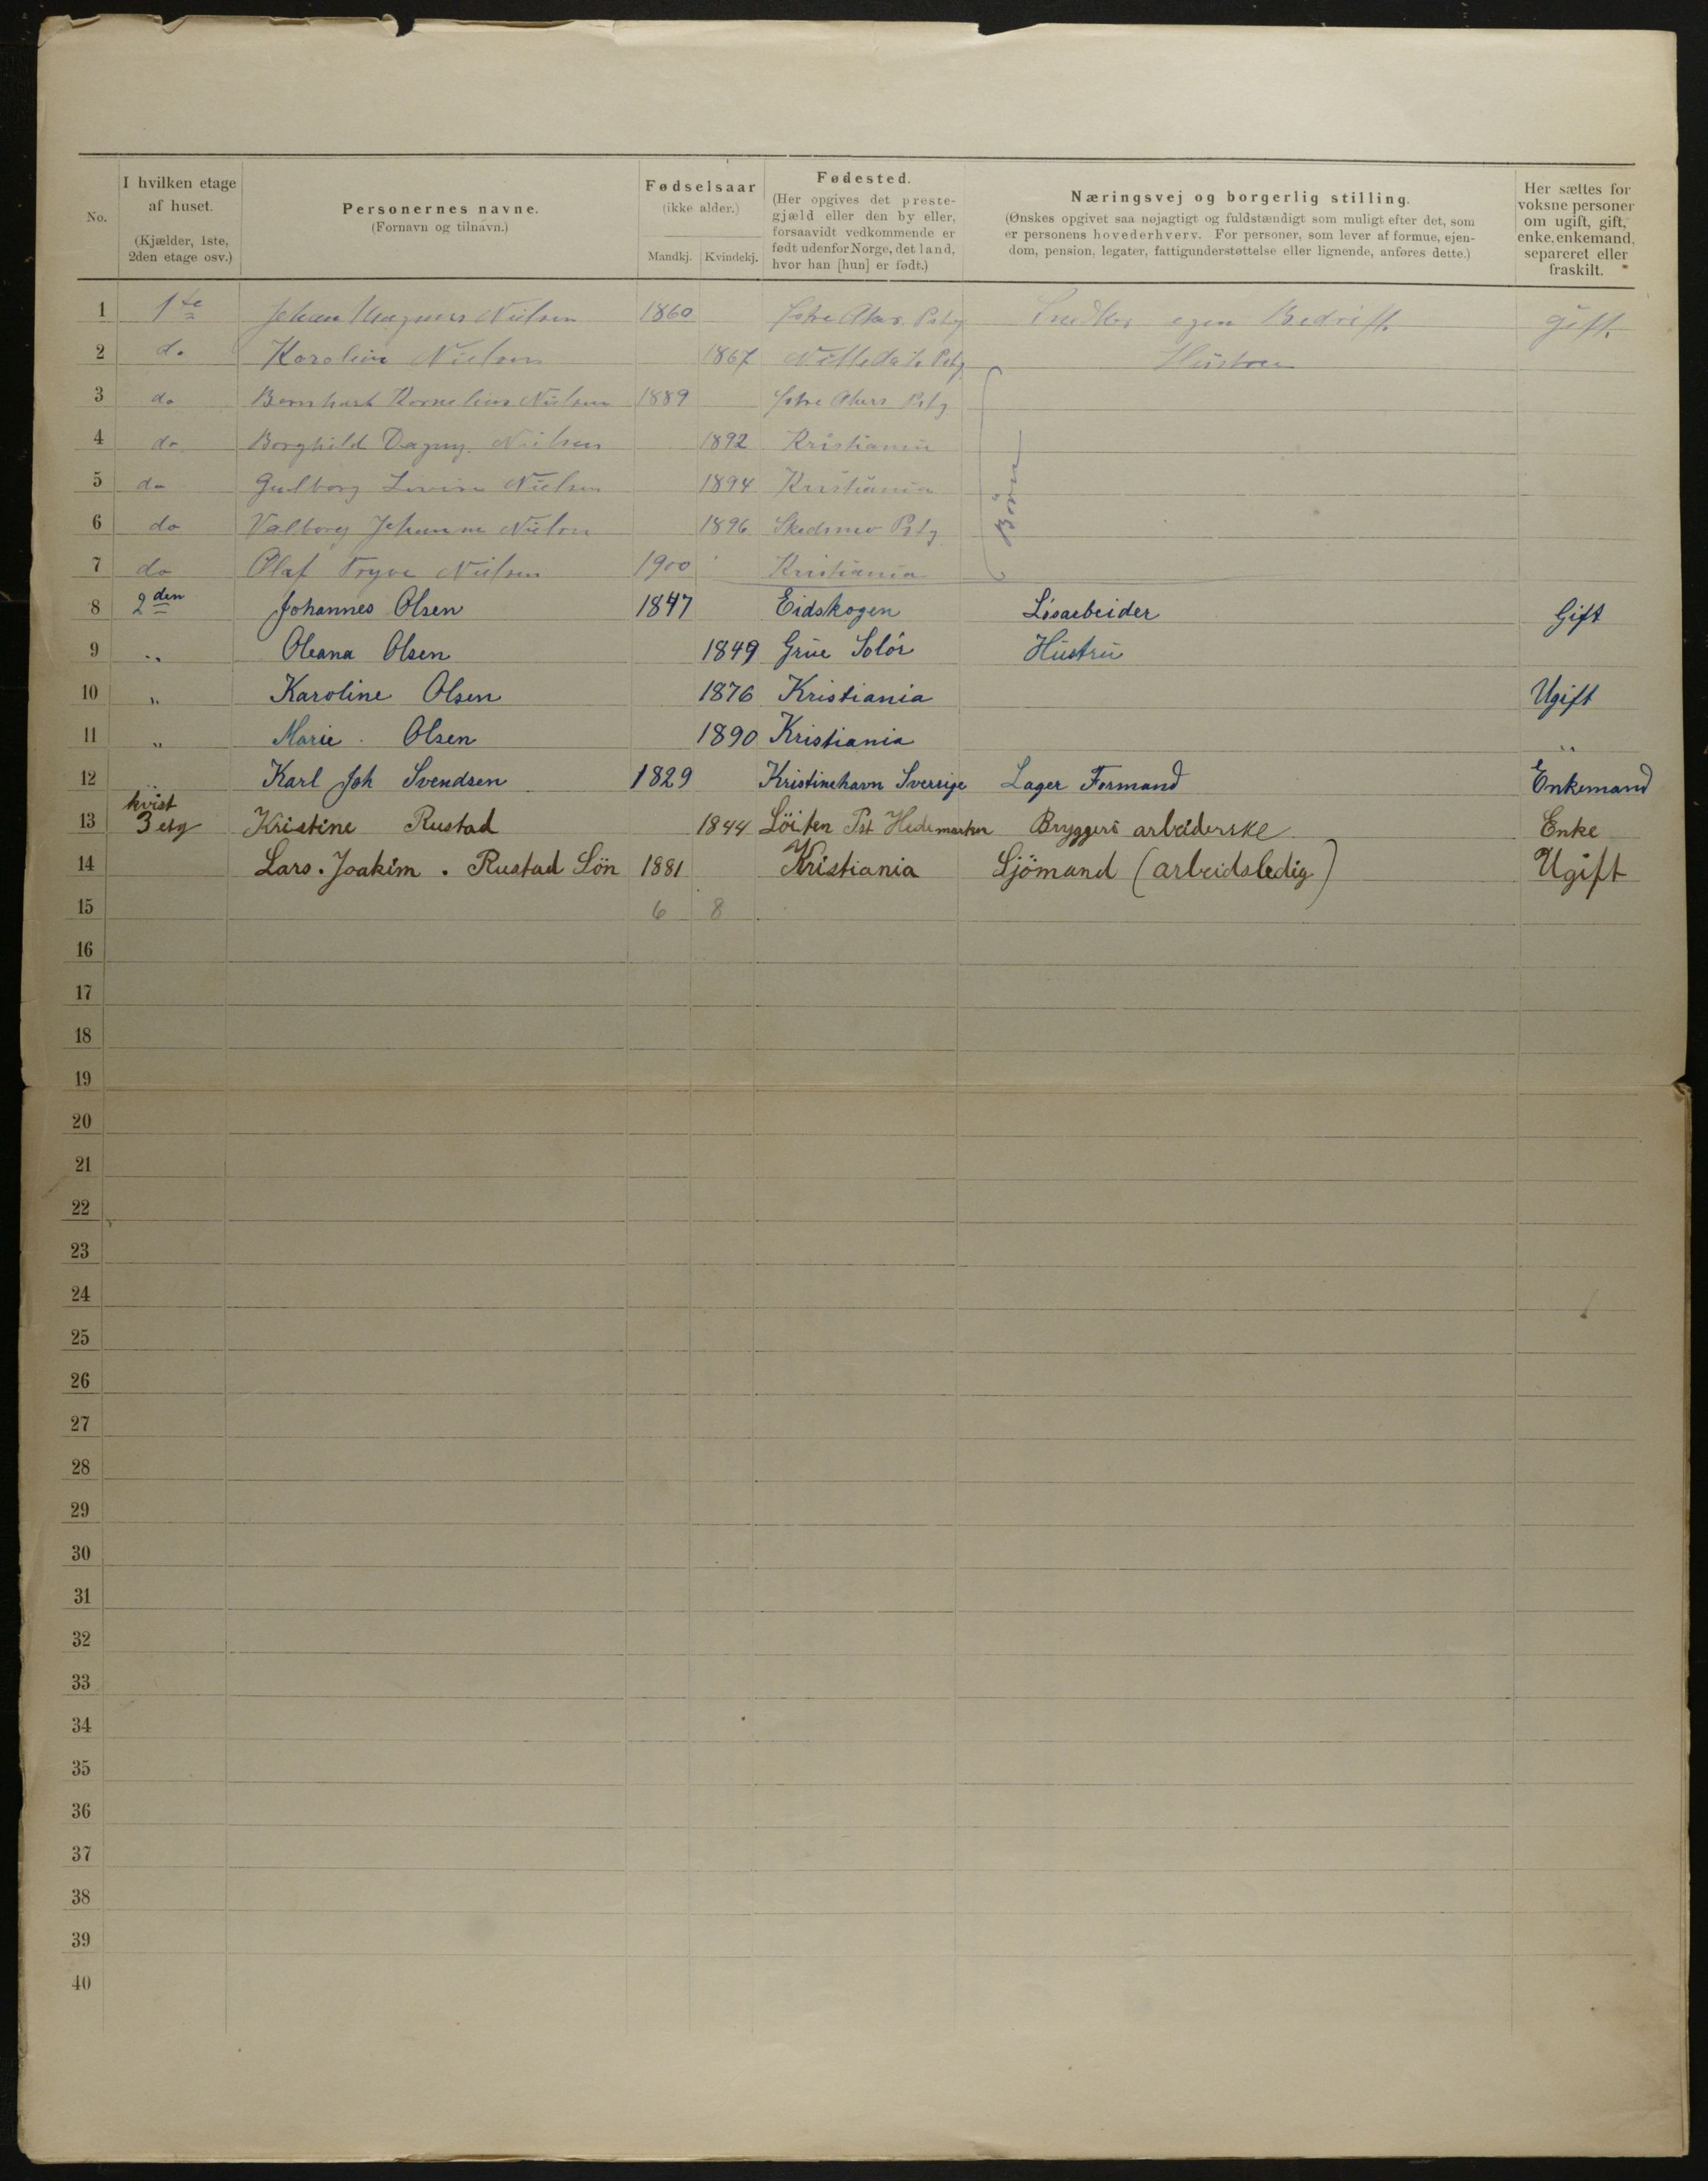 No.
I hvilken etage
af huset.
(Kjælder, 1ste,
2den etage osv.)
Personernes navne.
(Fornavn og tilnavn.)
Fødselsaar
(ikke alder.)
Mandkj. Kvindekj.
Fødested.
(Her opgives det preste-
gjæld eller den by eller,
forsaavidt vedkommende er
født udenfor Norge, det land,
hvor han [hun] er født.)
Næringsvej og borgerlig stilling.
(Ønskes opgivet saa nøjagtigt og fuldstændigt som muligt efter det, som
er personens hovederhverv. For personer, som lever af formue, ejen-
dom, pension, legater, fattigunderstøttelse eller lignende, anføres dette.)
Her sættes for
voksne personer
om ugift, gift,
enke, enkemand,
separeret eller
fraskilt.
1 1te Johan Magnus Nielsen 1860 Østre Akers Pstg egen Bedrift gift.
2 do Karoline Nielsen 1867 Nittedals Pstg Hustru
3 do Bernhart Kornelius Nielsen 1889 Østre Akers Pstg
4 do Borghild Dagny Nielsen 1892 Kristiania
5 do Gudborg Lovise Nielsen 1894 Kristiania
6 do Valborg Johanne Nielsen 1896 Skedsmo Pstg
7 do Olaf Trygve Nielsen 1900 Kristiania
Børn
8 2den Johannes Olsen 1847 Eidskogen Løsarbeider Gift
9 " Oleana Olsen 1849 Grue Solör Hustru
10 " Karoline Olsen 1876 Kristiania Ugift
11 " Marie Olsen 1890 Kristiania "
12 " Karl Joh Svendsen 1829 Kristinehavn Sverrige Lager Formand Enkemand
kvist
13 3 etg Kristine Rustad 1844 Löiten Pst Hedemarken Bryggeri arbeiderske Enke
14 Lars. Joakim. Rustad Sön 1881 Kristiania Sjömand (arbeidsledig) Ugift
15 6 8
16
17
18
19
20
21
22
23
24
25
26
27
28
29
30
31
32
33
34
35
36
37
38
39
40